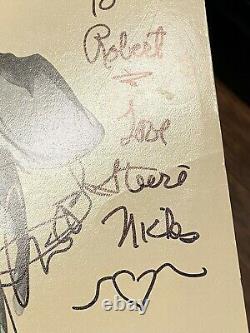 To
Robert
Love
Stevie
Nicks